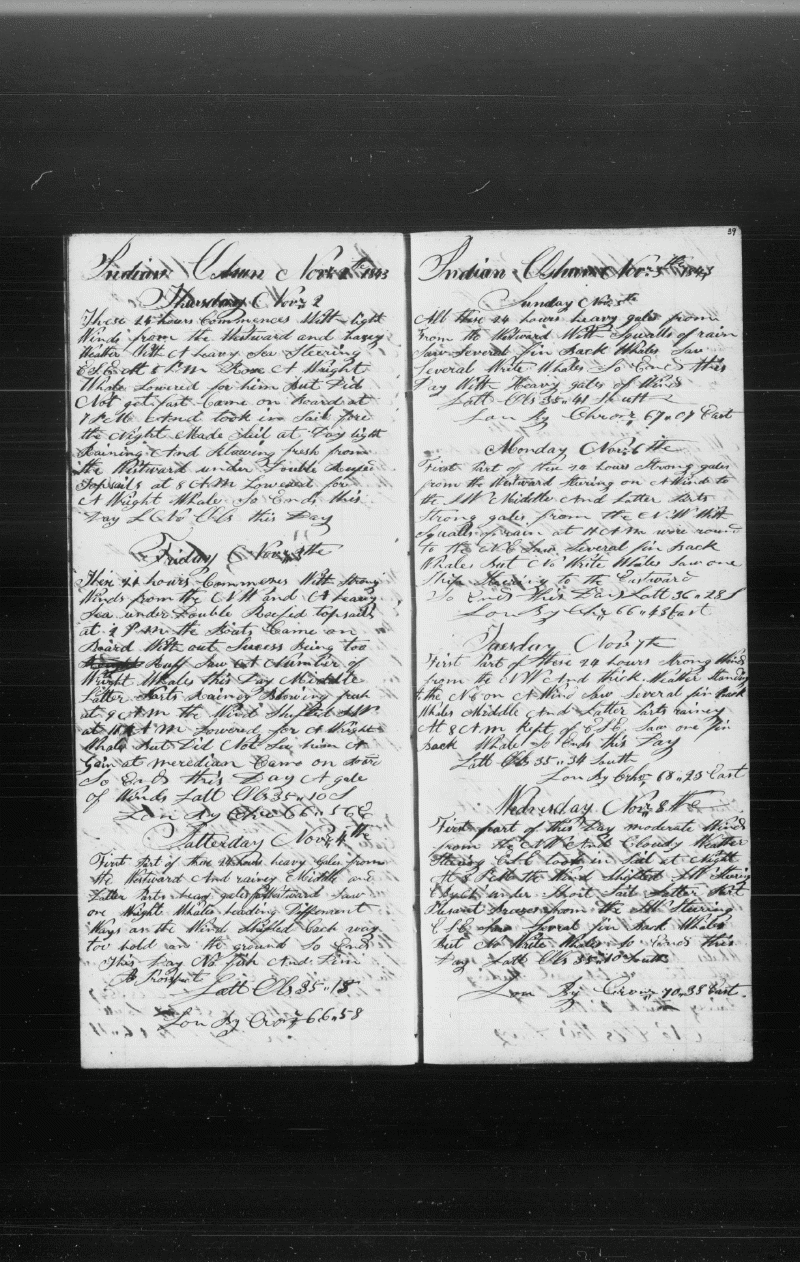 Indian Oshun Nov 2th 1843
Thursday Nov 2
These 24 hours Commences With light
Winds from the Westward and hazey
Weather With A heavy Sea Steering
ESE At 5 P.M Rose A Wright
Whale Lowered for him But Did
Not get fast Came on Board at
7 P.M And took in Sail fore
the Night Made Sail at Day light
Raining And Blowing fresh from
the Westward under Double Reefed
topsails at 8 A.M Lowered for
A Wright Whale So Ends this
Day No Obs this Day
Friday Nov 3the
These 24 hours Commences With Strong
Winds from the NW and A heavey
Sea under Double Reefid topsails
at 2 P.M the Boats Came on
Board With out Sucess Being too
Ruff Saw A Number of
Wright Whales this Day Middle
Latter Parts Rainey Blowing fresh
at 9 A.M the Wind Shifted SW
at 10 A.M Lowered for A Wright
Whale But Did Not See him A
Gain at meredian Came on Bord
So Ends this Day A gale
of Winds Latt Obs 35,,10 S
Lon By Chro 66,,56 E
Satterday Nov 4the
First Part of these 24 hours heavy Gales from
the Westward And rainey Middle and
Latter Parts heavy gales Westward Saw
one Wright Whale heading Difforount
Ways as the Wind Shifted Each way
too hold on the ground So Ends
This Day No fish And Slim
Prospect
Latt Obs 35,,15
Lon By Cro 66,,58
39
Indian Oshun Nov 5th 1843
Sunday Nov 5th
All these 24 hours heavy gales from
From the Westward With Squalls of rain
Saw Several fin Back Whales Saw
Several Write Whales So Ends this
Day With Heavy gales of Winds
Latt Obs 35,,41 South
Lon By Chron 67,,07 East
Monday Nov 6the
First Part of these 24 hours Strong gales
from the Westward Stering on A Wind to
the SW Middle And Latter Parts
Strong gales from the NW With
Squalls of rain at 11 A.M were round
to the NE Saw Several fin Back
Whales But No Write Whales Saw one
Ship Steering to the Eastward
So Ends this Day Latt 36,,28 S
Lon By Chr 66,,48 East
Tuesday Nov 7th
First Part of these 24 hours Strong Winds
from the NW And thick Weather Standing
to the NE on A Wind Saw Several fin Back
Whales Middle And Latter Parts rainey
At 8 A.M Kept of ESE Saw one fin
Back Whale So Ends this Day
Latt Obs 35,,34 South
Lon By Chro 68,,25 East
Wednesday Nov 8the
First part of this Day moderate Winds
from the NW And Cloudy Weather
Stering ESE took in Sail at Night
At 8 P.M the Wind Shifted SW Stering
under Short Sail Latter Part
Plesant Breezes from the SW Sterring
ESE Saw Several fin Back Whales
But No Write Whales So Ends this
Day Latt Obs 35,,10 South
Lon By Cron 70,,38 East